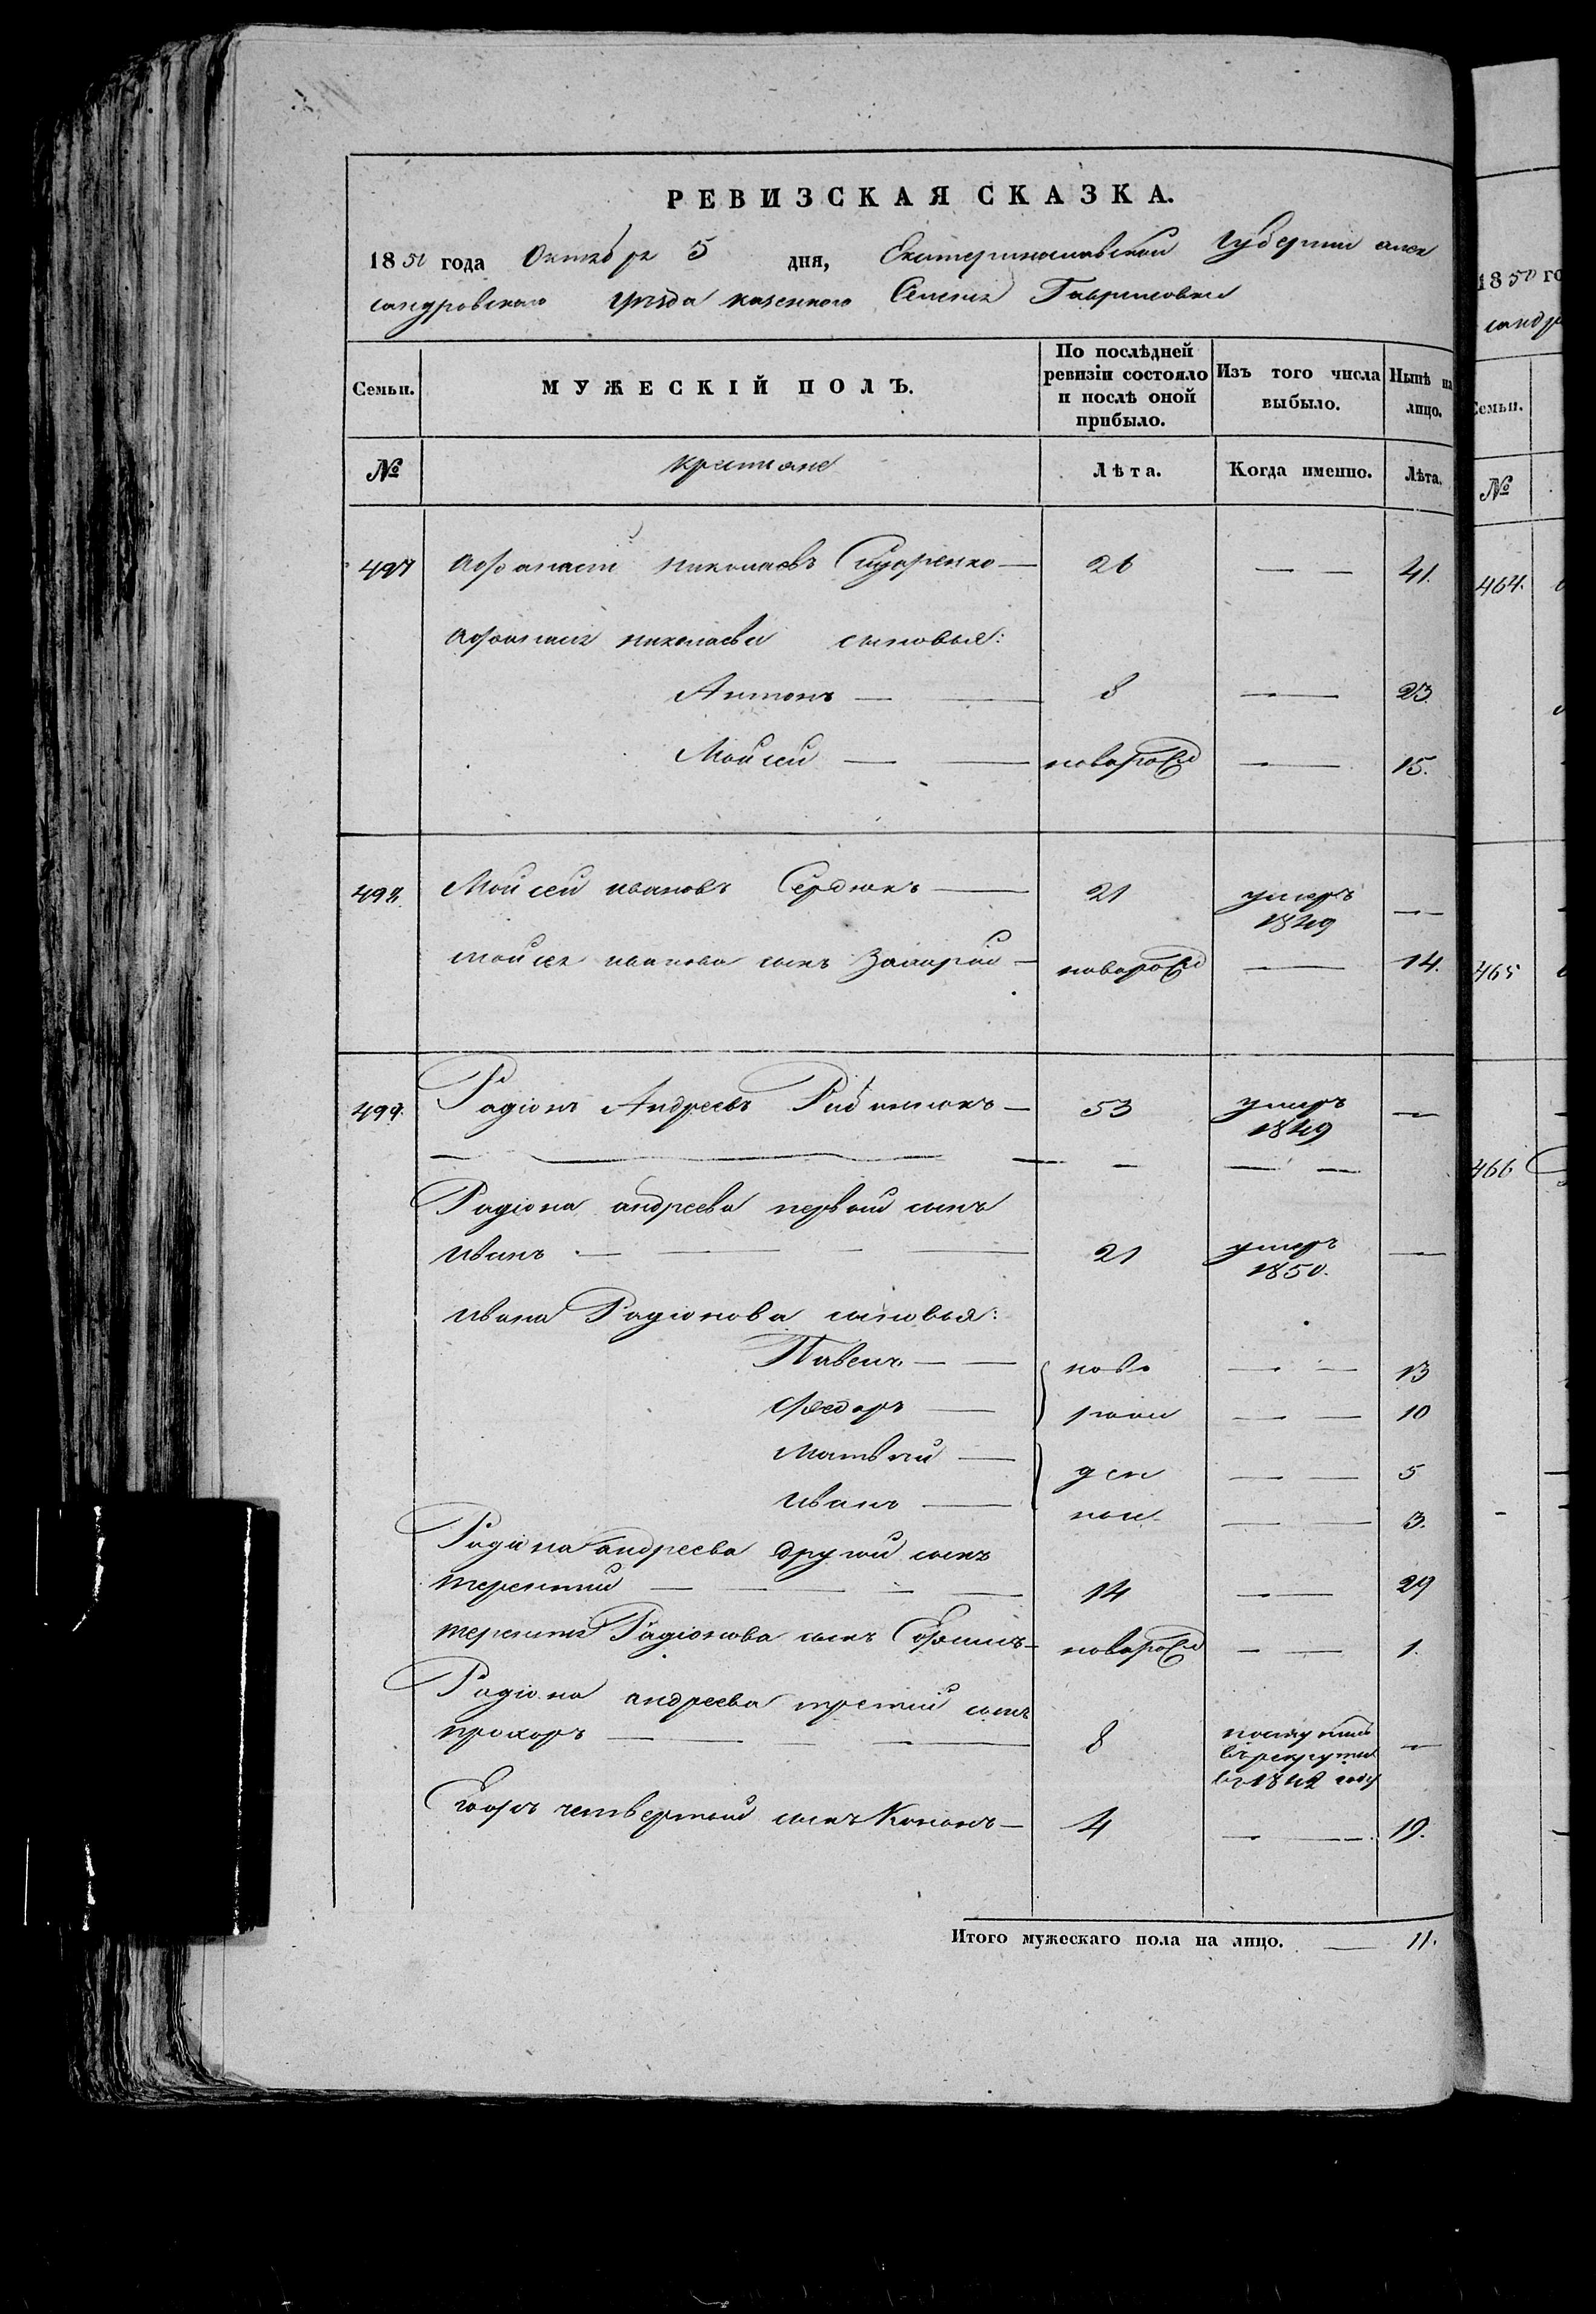 РЕВИЗСКАЯ СКАЗКА.
1850 года Октября 5 дня, Екатеринославской Губернии алек
сандровского уезда казенного Селения Гавриловки
Семьи. МУЖЕСКІЙ ПОЛЪ. По послѣдней ревизіи состояло и послѣ оной прибыло. Изъ того числа выбыло. Нынѣ на лицо.
№ крестьяне Лѣта. Когда именно. Лѣта.
497 Афанасій николаевъ Сидоренко — 26 — — 41.
Афанасия николаева сыновья:
Антонъ — — 8 — 23.
Мойсей — — новорожд — 15.
498. Мойсей ивановъ Сердюкъ — 21 умеръ 1849 —
мойсея иванова сынъ Захарий — новорожд — 14.
499. Радіонъ Андреевъ — 53 умеръ 1849 —
Радіона андреева первый сынъ
иванъ — — — — 21 умеръ 1850. —
ивана Радионова сыновья:
Павелъ — — ново — — 13
Федоръ — рож — — 10
Матвей — ден — — 5
иванъ — ные — — 3.
Радіона андреева другий сынъ
терентий — — — — 14 — 29
терентия Радіонова сынъ Ефимъ — новорожд — — 1.
Радіона андреева третий сынъ
прохоръ — — — — 8 поступилъ
въ рекруты
въ 1842 году —
четвертый сынъ Кононъ — 4 — — 19.
Итого мужескаго пола на лицо. — 11.
1850 го
сандр
Семьи.
№
464.
465
466